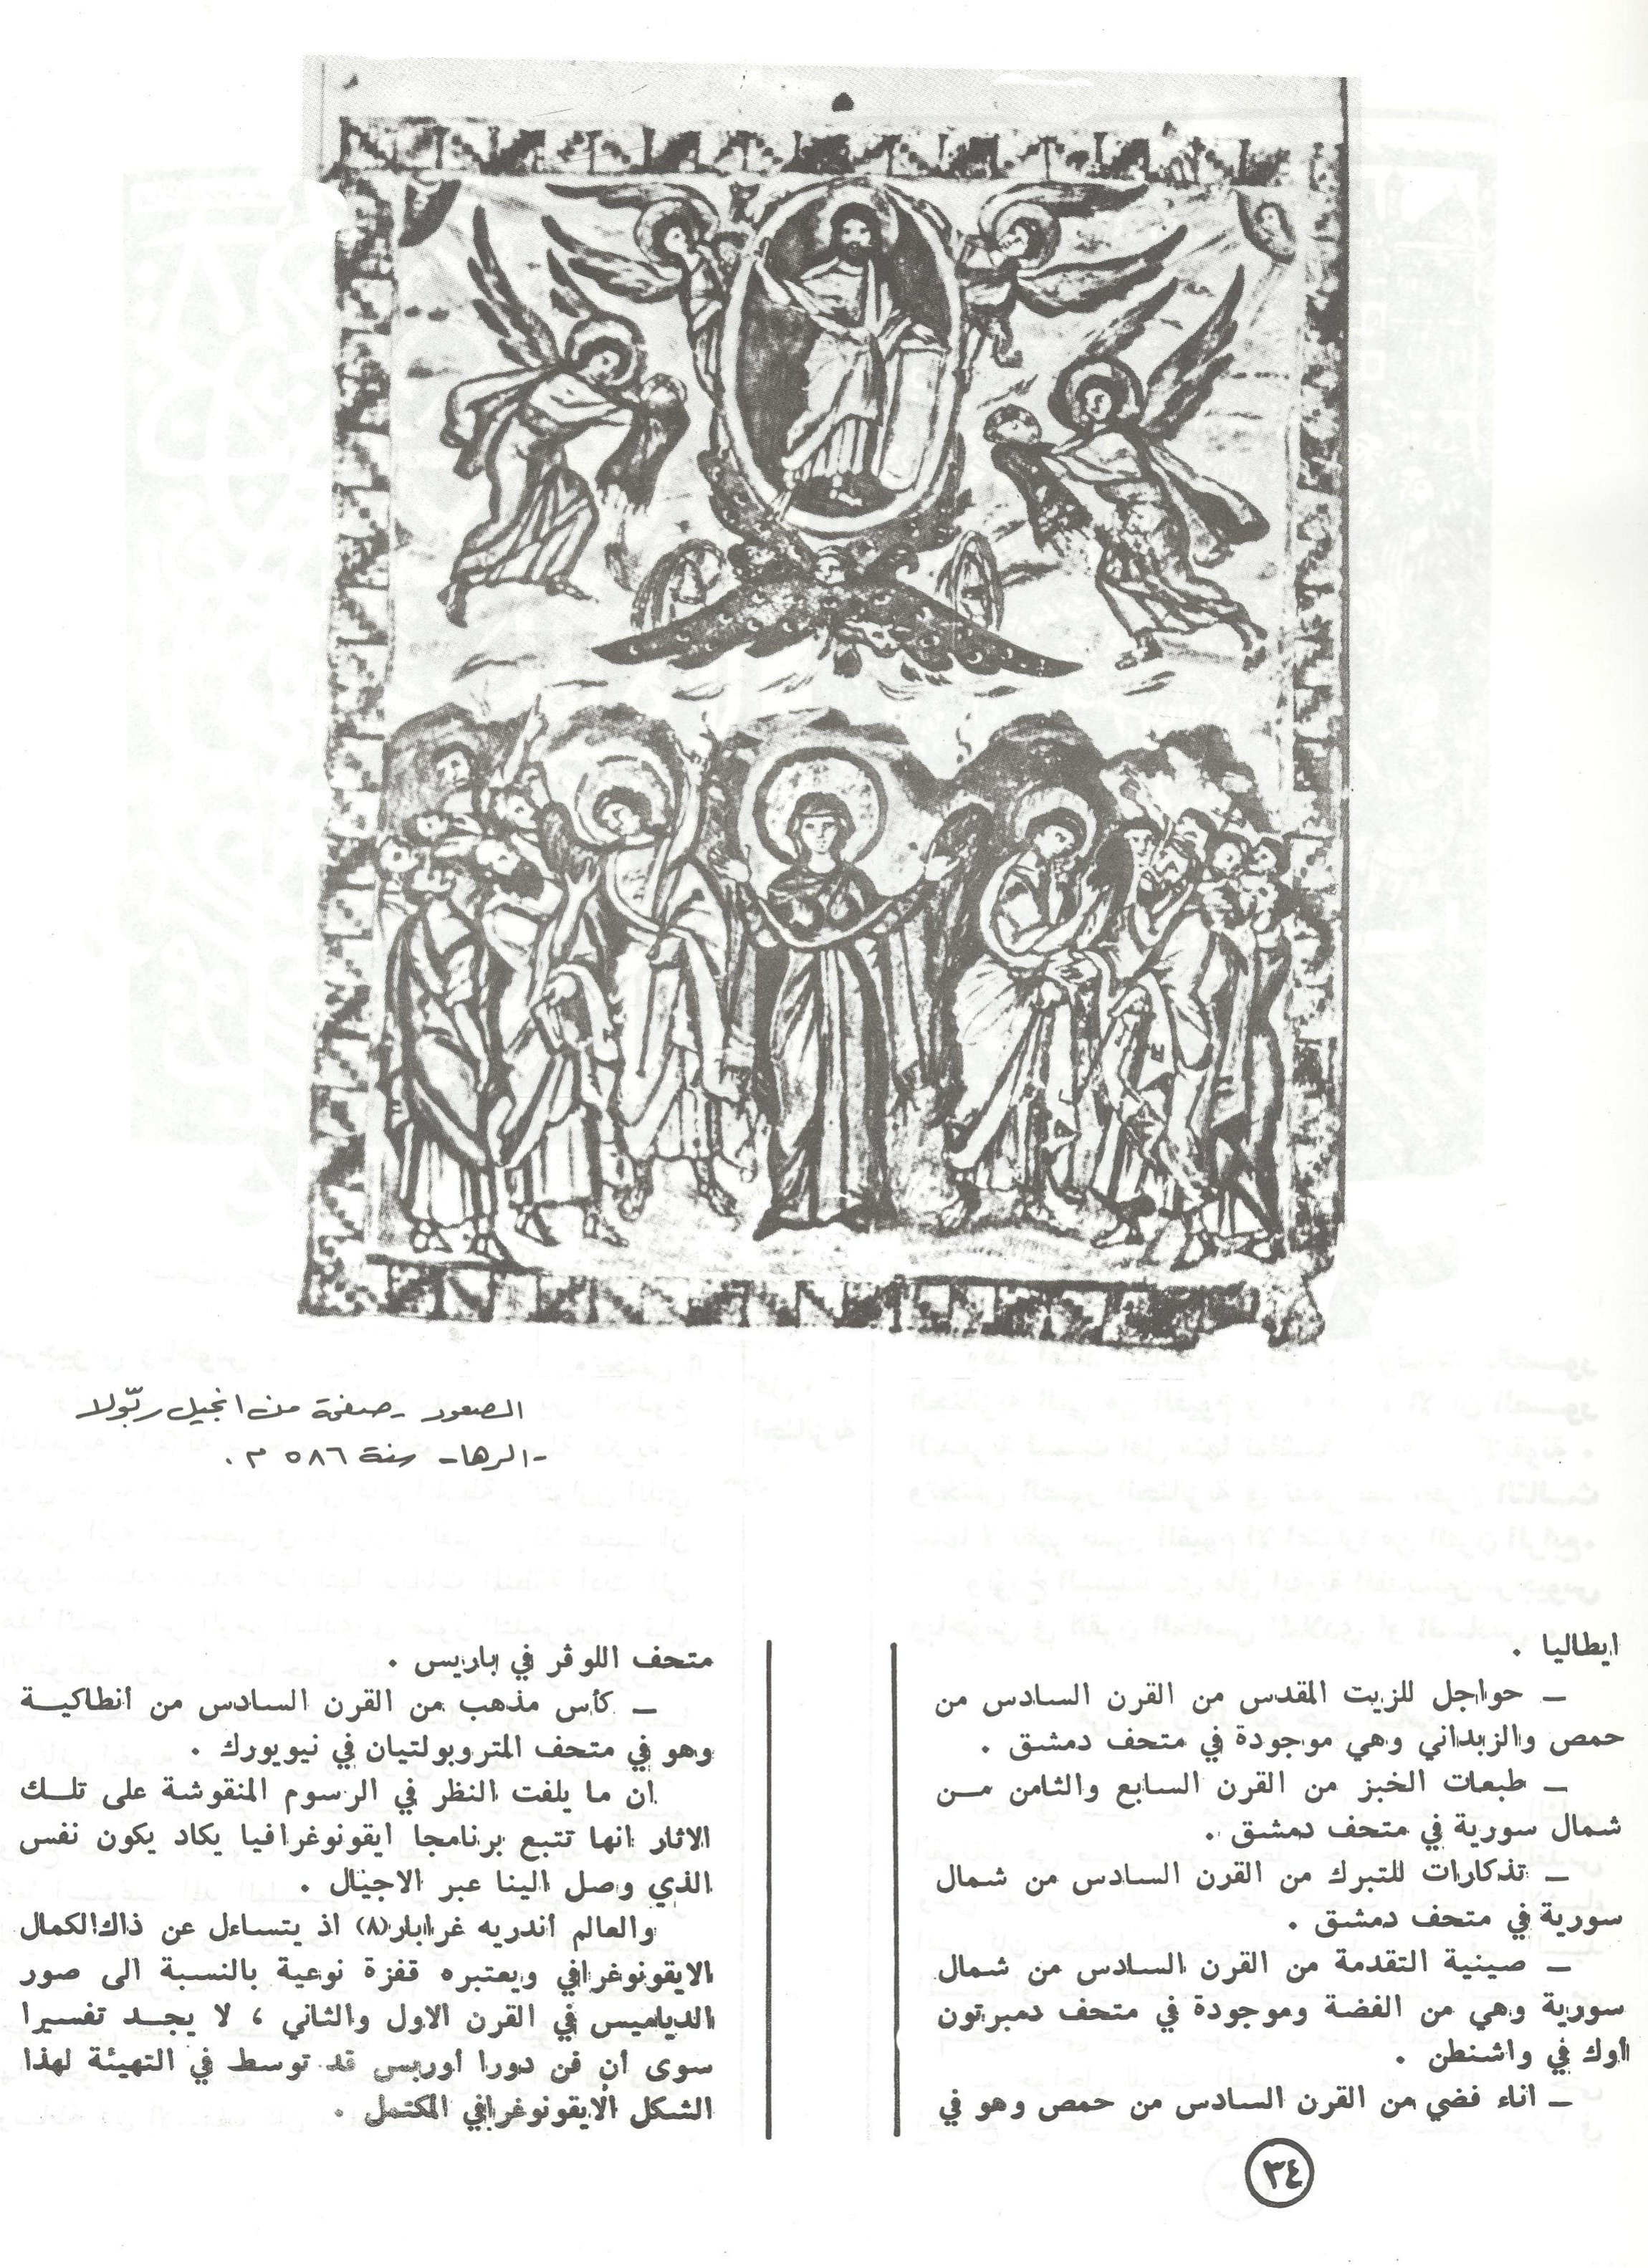 الصعود - صفحة من انجيل ربّولا
- الرها - سنة ٥٨٦ م .
ايطاليا .
— حواجل للزيت المقدس من القرن السادس من
حمص والزبداني وهي موجودة في متحف دمشق .
— طبعات الخبز من القرن السابع والثامن مــن
شمال سورية في متحف دمشق .
— تذكارات للتبرك من القرن السادس من شمال
سورية في متحف دمشق .
— صينية التقدمة من القرن السادس من شمال
سورية وهي من الفضة وموجودة في متحف دمبرتون
أوك في واشنطن .
— اناء فضي من القرن السادس من حمص وهو في
متحف اللوڤر في باريس .
— كأس مذهب من القرن السادس من أنطاكيــة
وهو في متحف المتروبولتيان في نيويورك .
ان ما يلفت النظر في الرسوم المنقوشة على تلــك
الاثار انها تتبع برنامجا ايقونوغرافيا يكاد يكون نفس
الذي وصل الينا عبر الاجيال .
والعالم أندريه غرابار(٨) اذ يتساءل عن ذاك الكمال
الايقونوغرافي ويعتبره قفزة نوعية بالنسبة الى صور
الدياميس في القرن الاول والثاني ، لا يجــد تفسيرا
سوى أن فن دورا أوربس قد توسط في التهيئة لهذا
الشكل الايقونوغرافي المكتمل .
٣٤